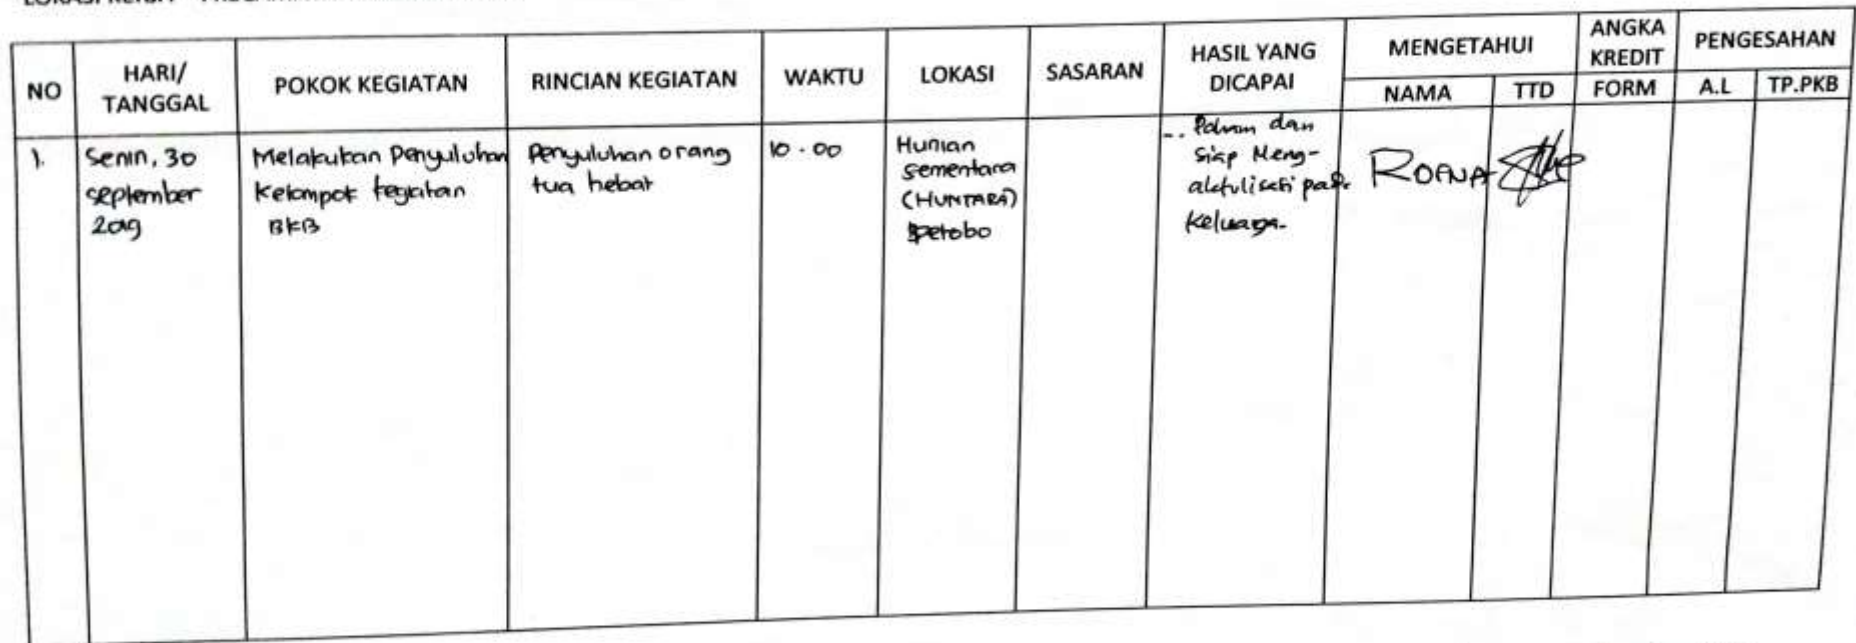 NO
HARI/
TANGGAL
POKOK KEGIATAN
RINCIAN KEGIATAN
WAKTU
LOKASI
SASARAN
HASIL YANG
DICAPAI
MENGETAHUI
NAMA
TTD
ANGKA
KREDIT
FORM
PENGESAHAN
A.L
TP.PKB
1.
Senin, 30
september
2019
Melakukan Penyuluhan
Kelompok kegiatan
BKB
Penyuluhan orang
tua hebat
10.00
Hunian
sementara
(HUNTARA)
Petobo
dan
siap Meng-
aktulisasi pada
Keluarga.